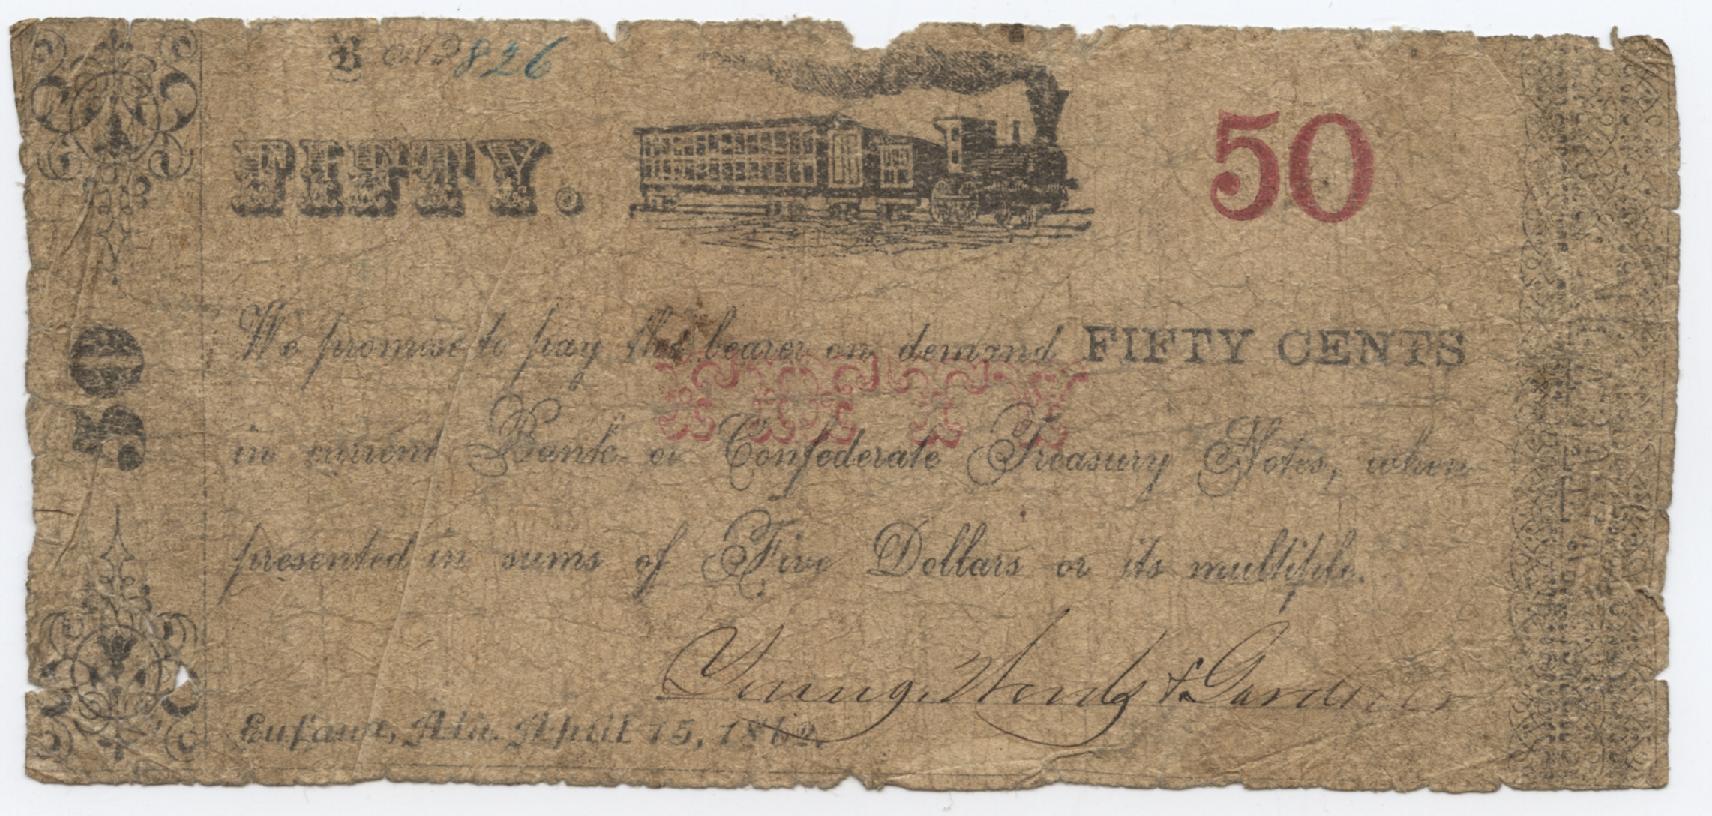 B No 826
FIFTY.
50
50
We promise to pay the bearer on demand FIFTY CENTS
FIFTY
in current Bank or Confederate Treasury Notes, when
presented in sums of Five Dollars or its multiple.
Young, Woods & Gardner
Eufaula, Ala. April 15, 1862.